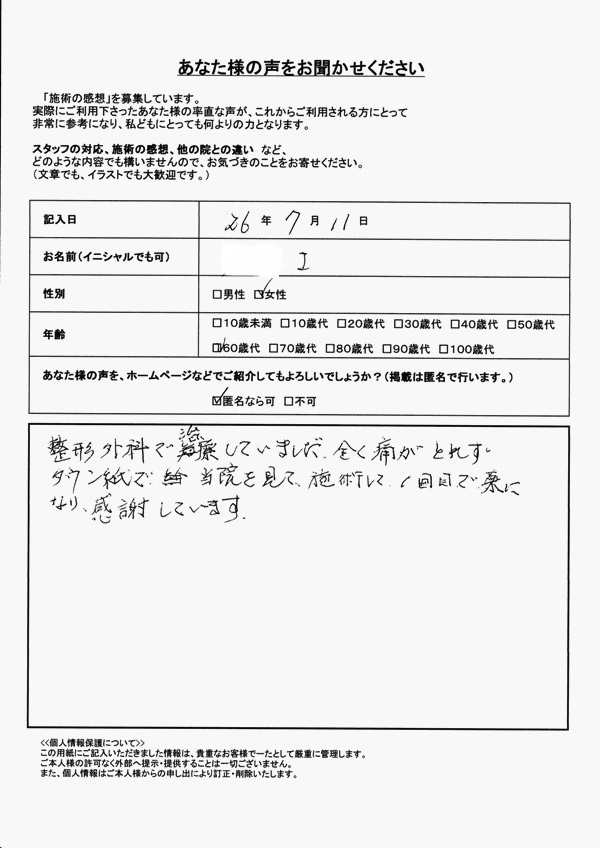 あなた様の声をお聞かせください
「施術の感想」を募集しています。
実際にご利用下さったあなた様の率直な声が、これからご利用される方にとって
非常に参考になり、私どもにとっても何よりの力となります。
スタッフの対応、施術の感想、他の院との違い など、
どのような内容でも構いませんので、お気づきのことをお寄せください。
（文章でも、イラストでも大歓迎です。）
記入日 26 年 7 月 11 日
お名前（イニシャルでも可） I
性別 □男性 ☑女性
年齢 □10歳未満 □10歳代 □20歳代 □30歳代 □40歳代 □50歳代
☑60歳代 □70歳代 □80歳代 □90歳代 □100歳代
あなた様の声を、ホームページなどでご紹介してもよろしいでしょうか？（掲載は匿名で行います。）
☑匿名なら可 □不可
整形外科で治療していましだ 全く痛がとれず
タウン紙で 当院を見て、施術して、1回目で楽に
なり、感謝しています。
<<個人情報保護について>>
この用紙にご記入いただきました情報は、貴重なお客様で一たとして厳重に管理します。
ご本人様の許可なく外部へ提示・提供することは一切ございません。
また、個人情報はご本人様からの申し出により訂正・削除いたします。